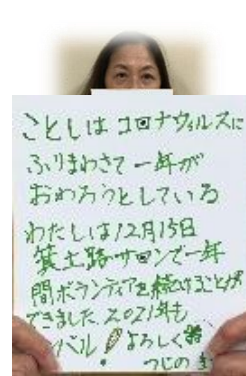 ことしはコロナウィルスに
ふりまわさて一年が
おわろうとしている
わたしは12月15日
箕土路サロンで一年
間ボランティアを続けることが
できました.2021年も
バル!よろしく
つじの